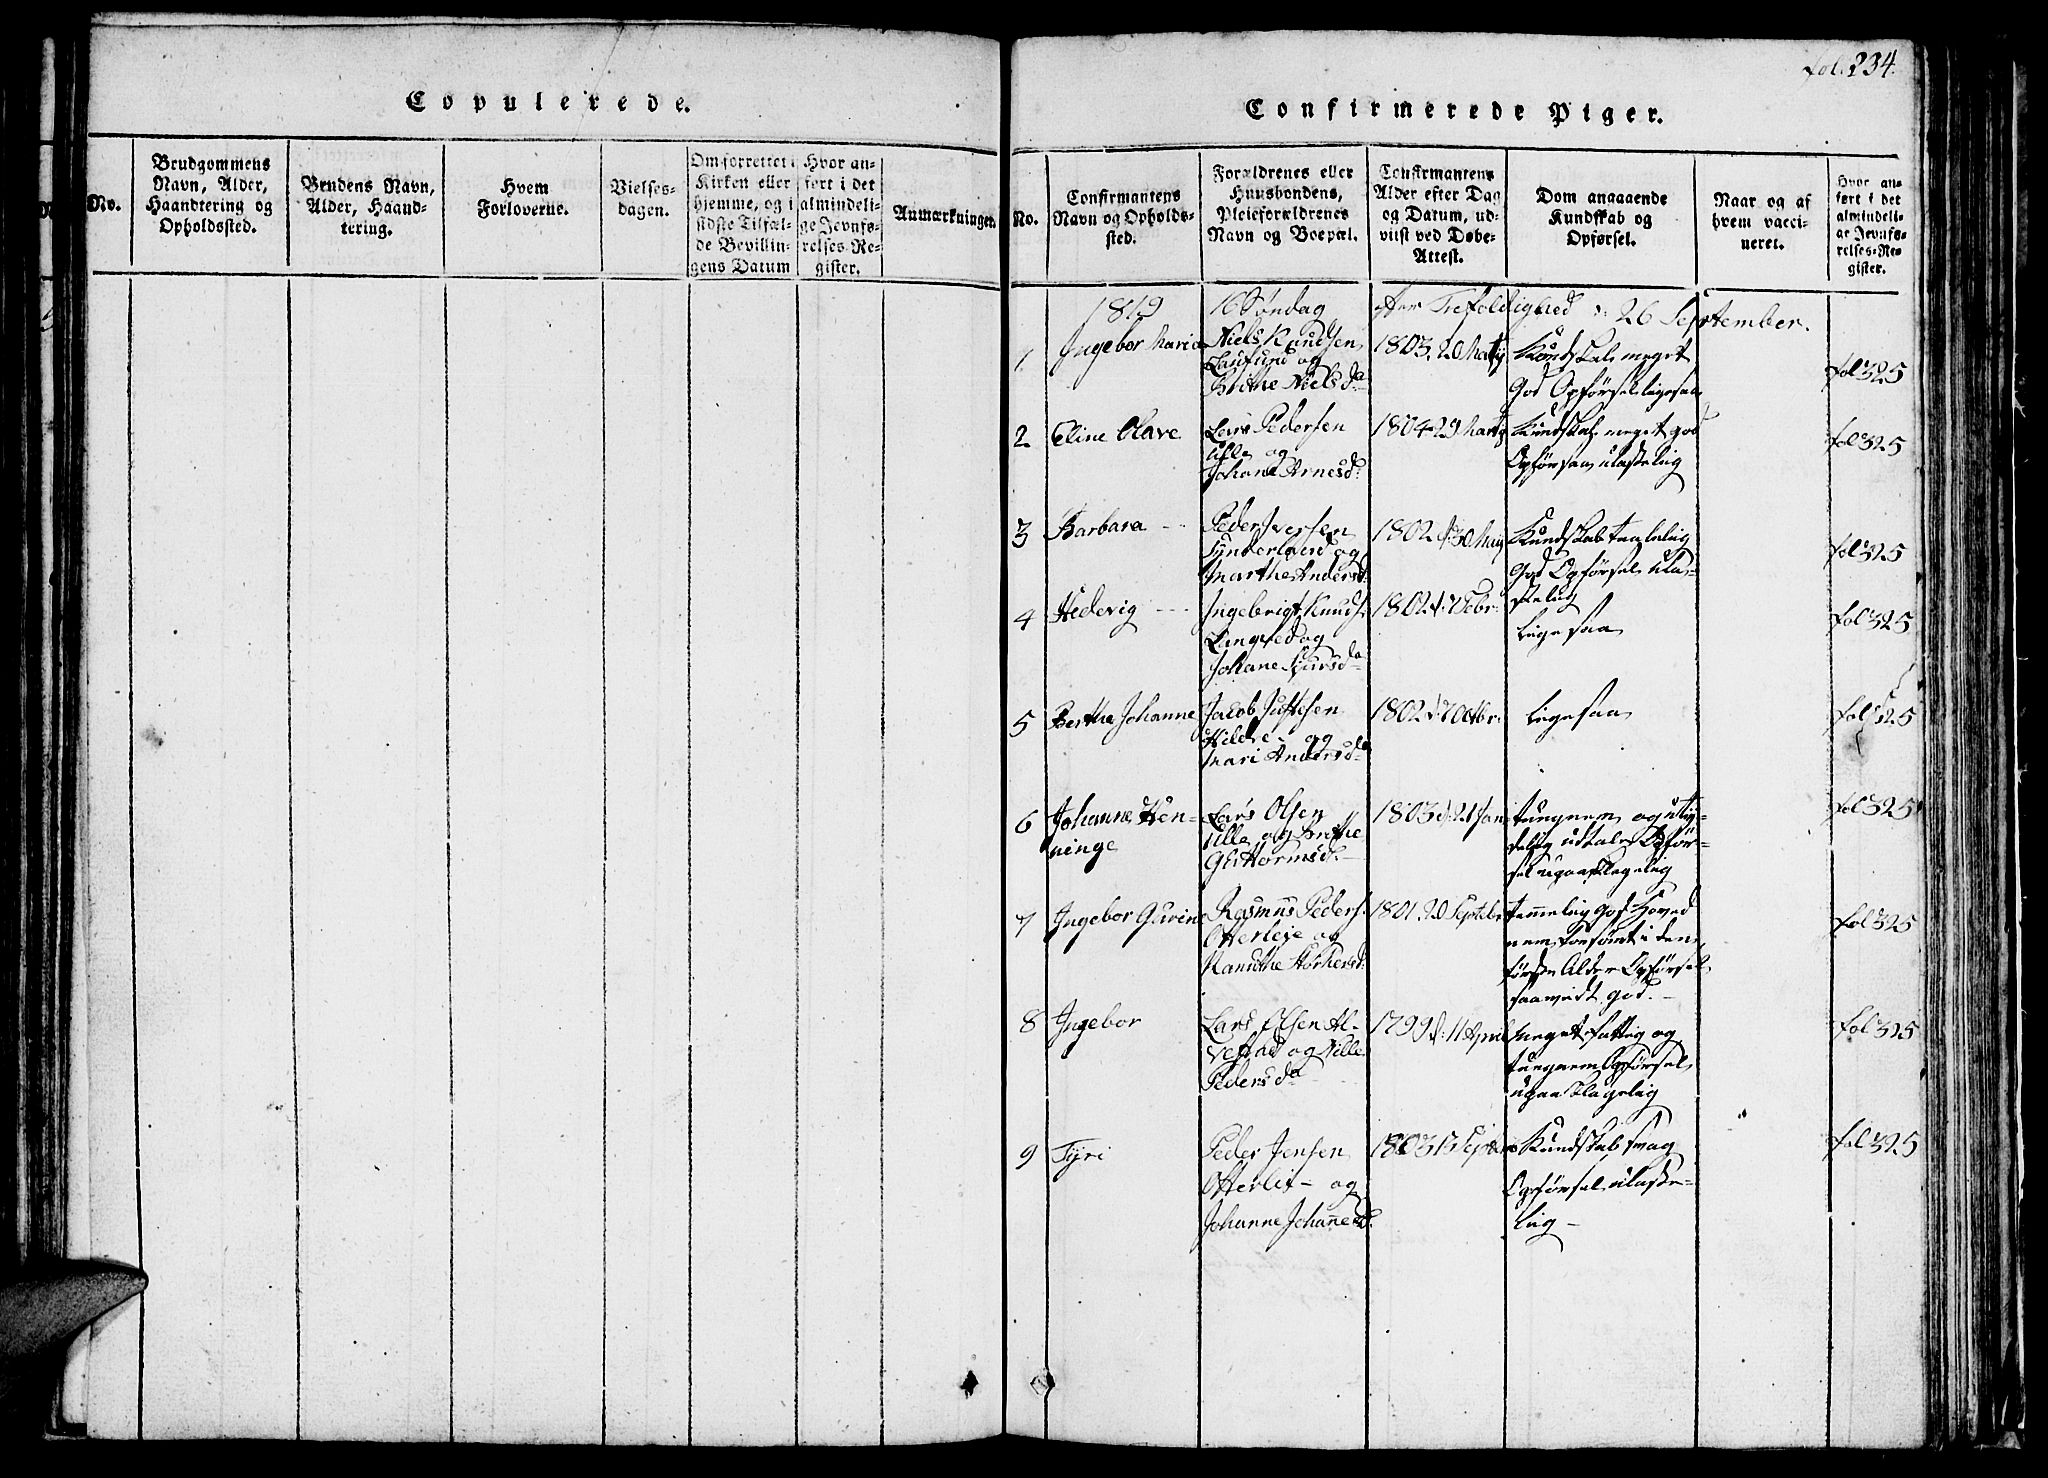 fol. 234.
Copulerede.
No.
Brudgommens
Navn, Alder,
Haandtering og
Opholdssted.
Brudens Navn,
Alder, Haand-
tering.
Hvem
Forloverne.
Vielses-
dagen.
Om forrettet i
Kirken eller
hjemme, og i
sidste Tilfæl-
de Bevillin-
gens Datum
Hvor an-
ført i det
almindeli-
ge Jevnfø-
relses-Re-
gister.
Anmærkninger.
Confirmerede Piger.
No.
Confirmantens
Navn og Opholds-
sted.
Forældrenes eller
Huusbondens,
Pleieforældrenes
Navn og Boepæl.
Confirmantens
Alder efter Dag
og Datum, ud-
viist ved Døbe-
Attest.
Dom angaaende
Kundskab og
Opførsel.
Naar og af
hvem vacci-
neret.
Hvor an-
ført i det
almindeli-
ge Jevnfø-
relses-Re-
gister.
1819 16 Søndag efter Trefoldighed 26 September.
1
Ingebor Maria
Niels Knudsen
og
Brithe Nielsda
1803, 20
Kundskab meget
God Opførsel ligesaa
fol 325
2
Eline Olave
Lars Pedersen
Ulle og
Johane Arnesd:
1804 29 Marty
Kundskab meget god
Opførsen ulastelig
fol 325
3
Barbara
Peder Iversen
Synderland og
Marthe Andersd
1802 d: 30 Maij
Kundskab taalelig
God Opførsel ula-
stelig
fol 325
4
Hedevig
Ingebrigt Knuds.
og
Johane Siursda
1802 d: 7 Febr:
ligesaa
fol 325
5
Berthe Johanne
Jacob Justesen
Hildre og
Mari Andersda
1802 d: 7 Octbr:
ligesaa
fol 325
6
Johanne Hen-
ninge
Lars Olsen
Ulle og Brithe
Guttormsd.
1803 d: 21 Jan
tungnem og uty-
delig udtale Opfør-
sel upaaklagelig
fol 325
7
Ingebor Gurine
Rasmus Peders.
Otterleje og
1801. 20 Septebr
temmelig god Hoved
nem forsømt i den
første Alder Opførsel
saavidt god.
fol 325
8
Ingebor
Lars Elsen Al-
vestad og Sille
Pedersda
1799 d: 11 April
meget fattig og
tungnem Opførsel
upaaklagelig
fol 325
9
Tyri
Peder Jensen
Otterlei - og
Johanne Johanesd.
1803 13 Septbr
Kundskab svag
Opførsel ulaste-
lig -
fol 325